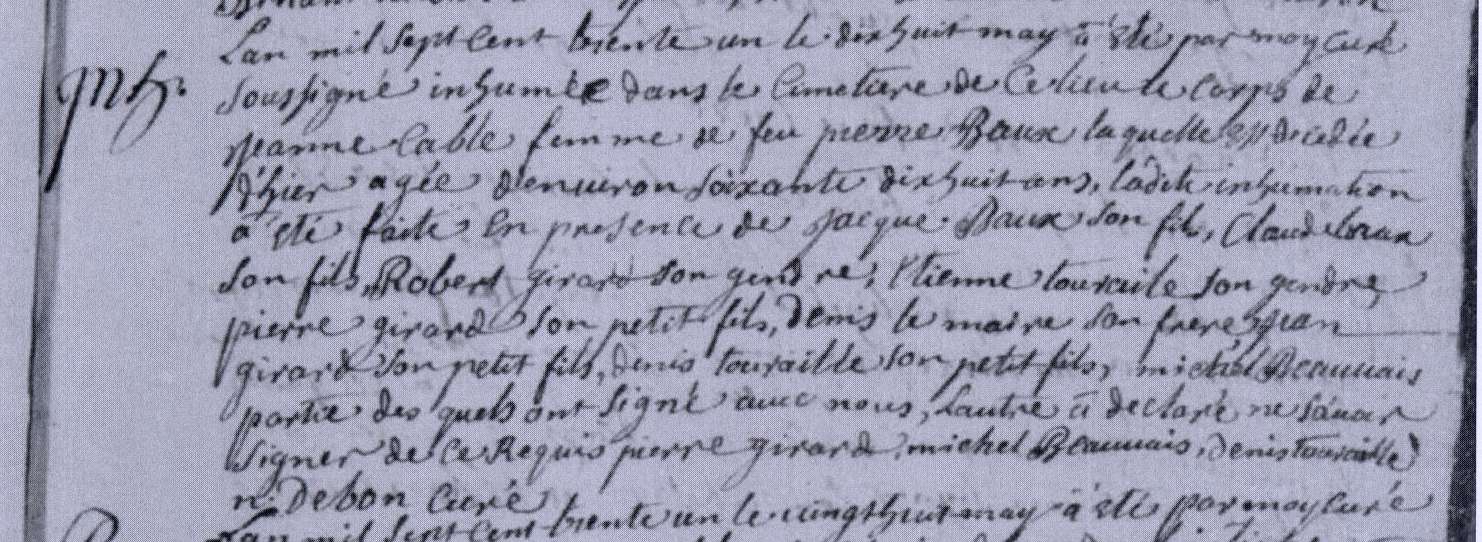 Lan mil sept cent trente un le dixhuit may à été par moy curé
Mh.
soussigné inhumée dans le Cimetiere de Ce lieu le corps de
Jeanne Cable femme de feu pierre Baux laquelle est decedée
d'hier agée denuiron soixante dixhuit ans, ladite inhumation
à été faite en presence de jacque Baux son fils, Claude baux
son fils, Robert girard son gendre, Etienne touraile son gendre,
pierre girard son petit fils, denis le maire son frere, jean
girard son petit fils, denis touraille son petit fils, michel Beauuais
partie des quels ont signé auec nous, Lautre à declaré ne sauoir
signer de ce Requis pierre girard, michel Beauuais, denis touraille
n. Debon Curé
Lan mil sept cent trente un le uingthuit may à été par moy curé